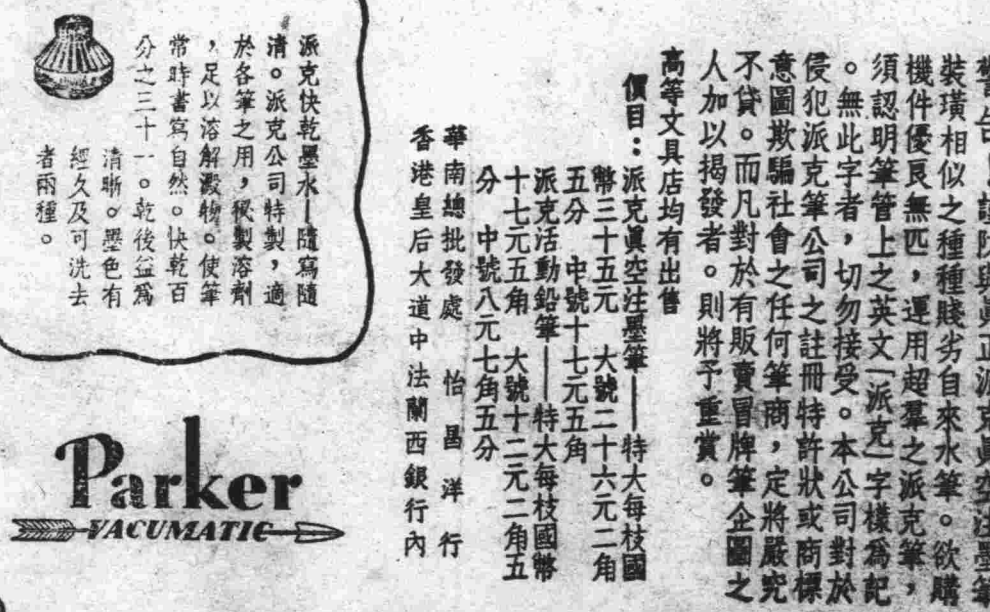 警告！謹防與眞正派克眞空注墨筆
裝璜相似之種種賤劣自來水筆。欲購
機件優良無匹，運用超羣之派克筆，
須認明筆管上之英文「派克」字樣爲記
。無此字者，切勿接受。本公司對於
侵犯派克筆公司之註冊特許狀或商標
意圖欺騙社會之任何筆商，定將嚴究
不貸。而凡對於有販賣冒牌筆企圖之
人加以揭發者。則將予重賞。
高等文具店均有出售
價目：派克眞空注墨筆——特大每枝國
幣三十五元　大號二十六元二角
五分　中號十七元五角
派克活動鉛筆——特大每枝國幣
十七元五角　大號十二元二角五
分　中號八元七角五分
華南總批發處　怡昌洋行
香港皇后大道中法蘭西銀行內
派克快乾墨水—隨寫隨
清。派克公司特製，適
於各筆之用，秘製溶劑
，足以溶解澱物。使筆
常時書寫自然。快乾百
分之三十一。乾後益爲
清晰。墨色有
經久及可洗去
者兩種。
Parker
VACUMATIC